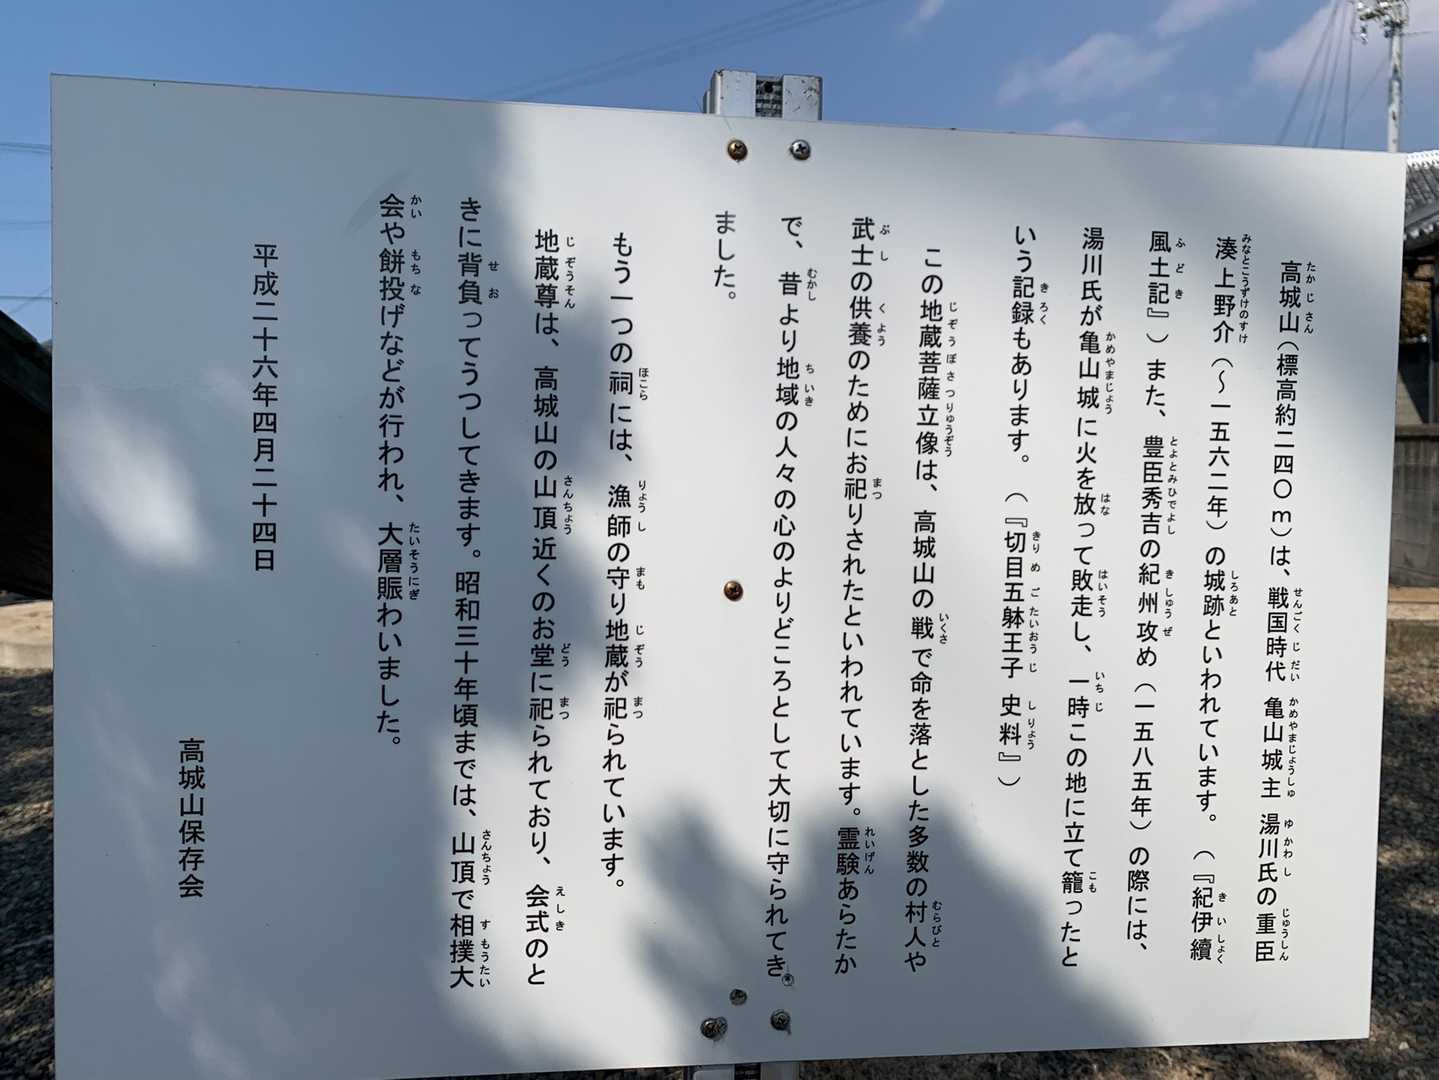 高城山（標高約二四〇ｍ）は、戦国時代 亀山城主 湯川氏の重臣
湊上野介（～一五六二年）の城跡といわれています。（『紀伊續
風土記』）また、豊臣秀吉の紀州攻め（一五八五年）の際には、
湯川氏が亀山城に火を放って敗走し、一時この地に立て籠ったと
いう記録もあります。（『切目五躰王子 史料』）
この地蔵菩薩立像は、高城山の戦で命を落とした多数の村人や
武士の供養のためにお祀りされたといわれています。霊験あらたか
で、昔より地域の人々の心のよりどころとして大切に守られてき
ました。
もう一つの祠には、漁師の守り地蔵が祀られています。
地蔵尊は、高城山の山頂近くのお堂に祀られており、会式のと
きに背負ってうつしてきます。昭和三十年頃までは、山頂で相撲大
会や餅投げなどが行われ、大層賑わいました。
平成二十六年四月二十四日
高城山保存会